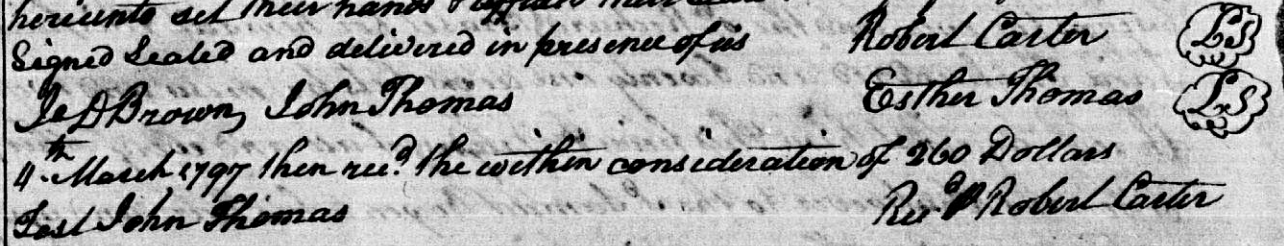 hereunto set their hands & affixed their seals
Signed Sealed and delivered in presence of us Robert Carter LS
Je D Brown, John Thomas Esther Thomas LS
4th March 1797 then recd. the within consideration of 260 Dollars
Test John Thomas Recd P Robert Carter